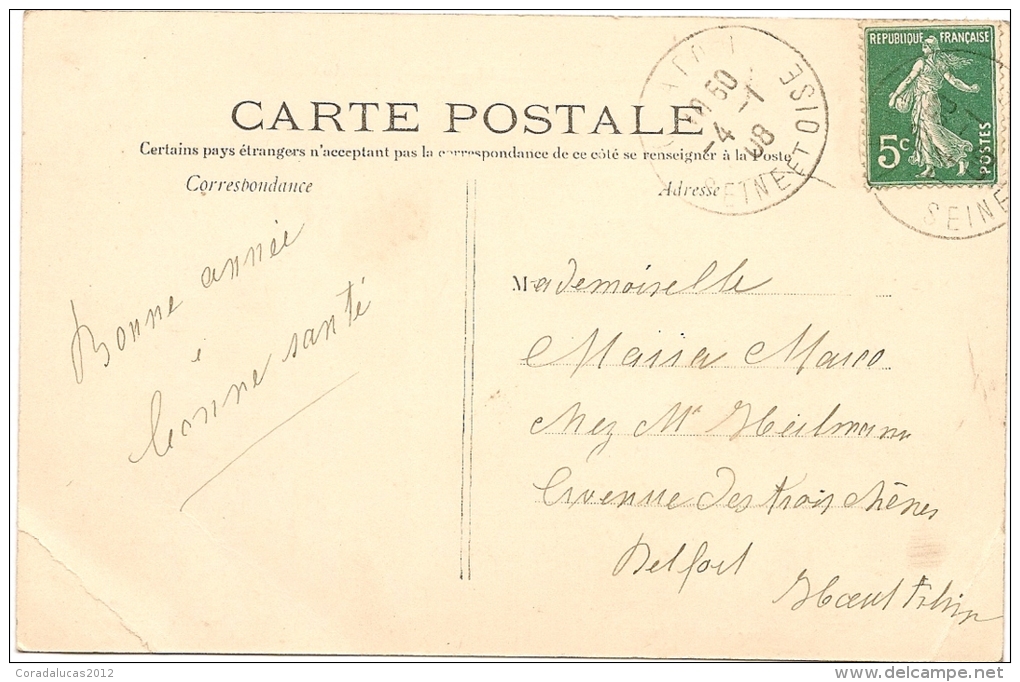 CARTE POSTALE
Certains pays étrangers n'acceptent pas la correspondance de ce côté se renseigner à la Poste
Correspondance
Adresse
SEINE ET OISE
-4 -1
08
RÉPUBLIQUE FRANÇAISE
5c
POSTES
SEINE
Bonne année
é
bonne santé
Mademoiselle
Maria Marco
chez Mr Heilmann
Avenue des trois chênes
Belfort
Haut Rhin
Coradalucas2012
www.delcampe.net